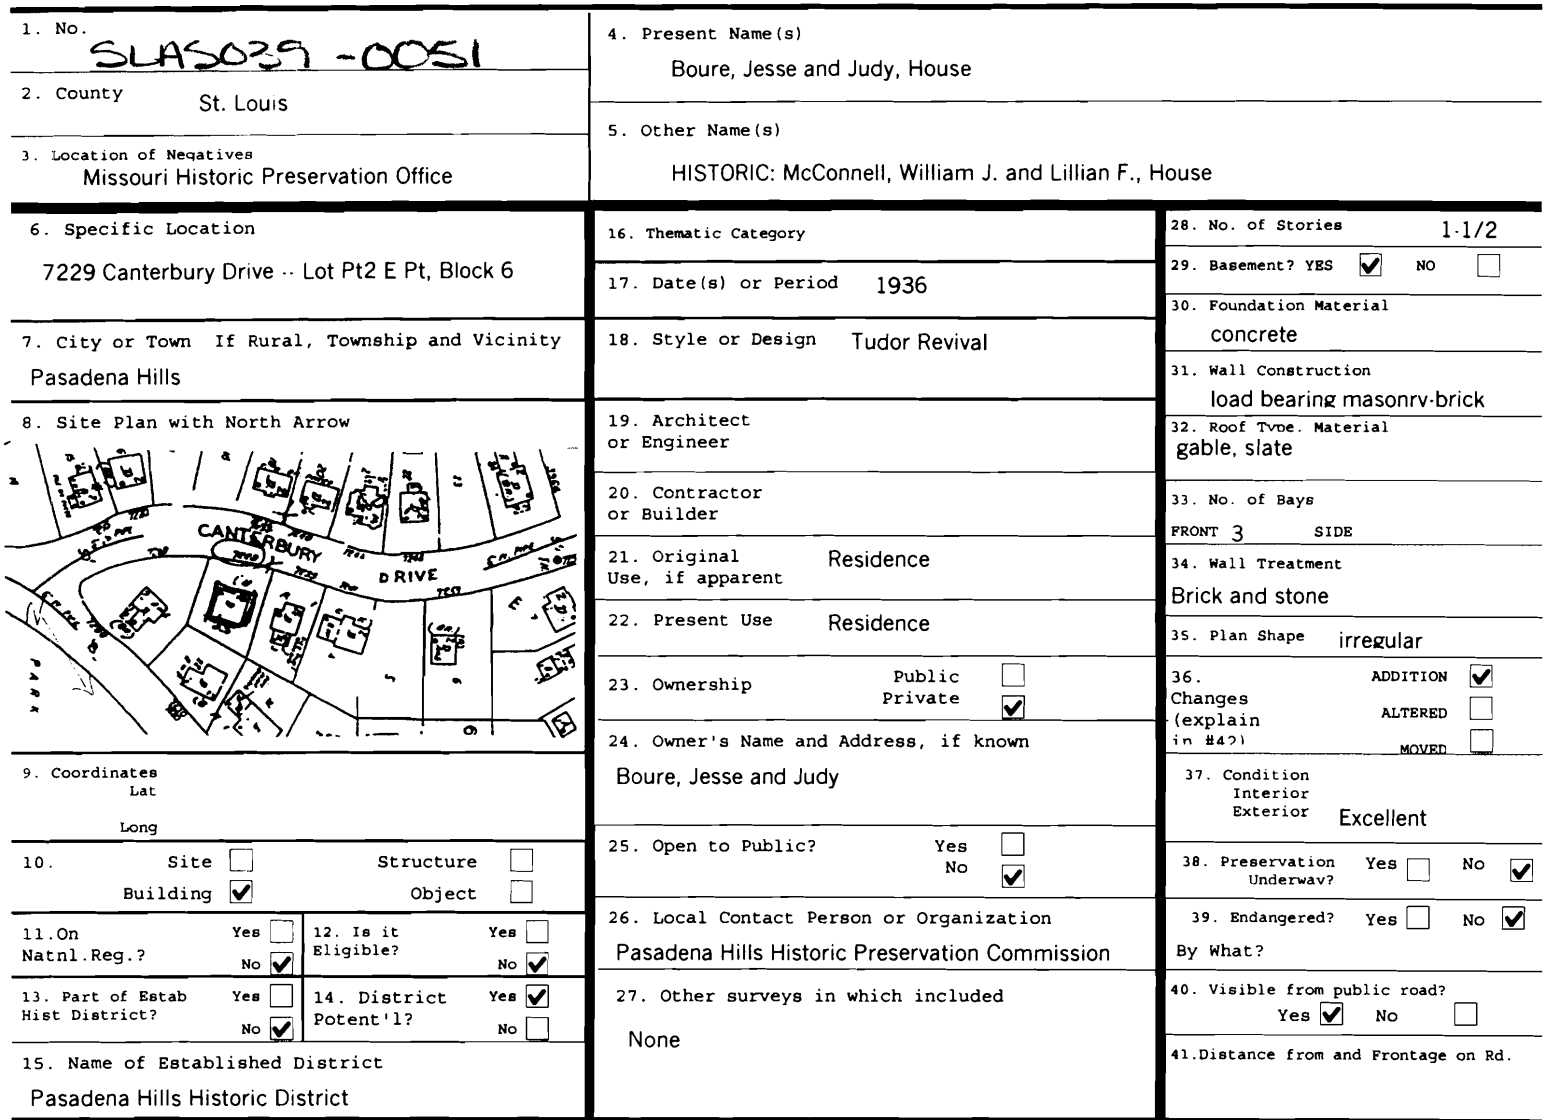 1. No.
SLAS039-0051
2. County
St. Louis
3. Location of Negatives
Missouri Historic Preservation Office
4. Present Name(s)
Boure, Jesse and Judy, House
5. Other Name(s)
HISTORIC: McConnell, William J. and Lillian F., House
6. Specific Location
7229 Canterbury Drive -- Lot Pt2 E Pt, Block 6
7. City or Town If Rural, Township and Vicinity
Pasadena Hills
8. Site Plan with North Arrow
CANTERBURY
DRIVE
PARK
9. Coordinates
Lat
Long
10. Site Structure
Building ✔ Object
11.On Natnl.Reg.? Yes
No ✔
12. Is it Eligible? Yes
No ✔
13. Part of Estab Hist District? Yes
No ✔
14. District Potent'l? Yes ✔
No
15. Name of Established District
Pasadena Hills Historic District
16. Thematic Category
17. Date(s) or Period 1936
18. Style or Design Tudor Revival
19. Architect
or Engineer
20. Contractor
or Builder
21. Original Residence
Use, if apparent
22. Present Use Residence
23. Ownership Public
Private ✔
24. Owner's Name and Address, if known
Boure, Jesse and Judy
25. Open to Public? Yes
No ✔
26. Local Contact Person or Organization
Pasadena Hills Historic Preservation Commission
27. Other surveys in which included
None
28. No. of Stories 1-1/2
29. Basement? YES ✔ NO
30. Foundation Material
concrete
31. Wall Construction
load bearing masonry-brick
32. Roof Type. Material
gable, slate
33. No. of Bays
FRONT 3 SIDE
34. Wall Treatment
Brick and stone
35. Plan Shape irregular
36. ADDITION ✔
Changes
(explain ALTERED
in #42) MOVED
37. Condition
Interior
Exterior Excellent
38. Preservation Yes No ✔
Underway?
39. Endangered? Yes No ✔
By What?
40. Visible from public road?
Yes ✔ No
41.Distance from and Frontage on Rd.